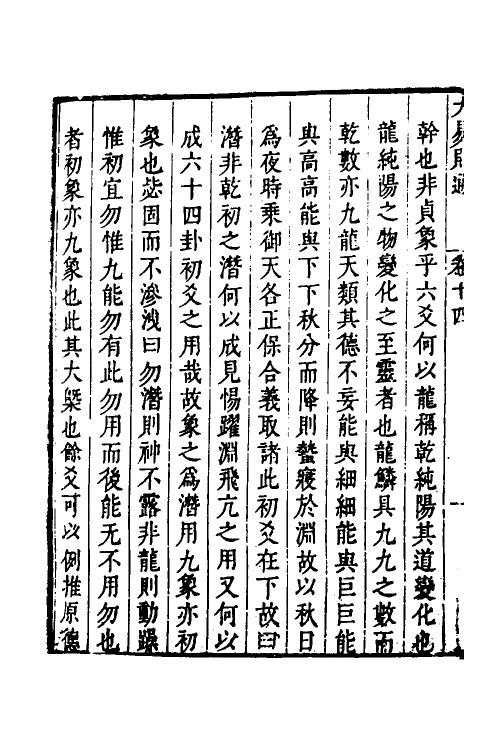 大易則通　卷十四　一
幹也非貞象乎六爻何以龍稱乾純陽其道變化也
龍純陽之物變化之至靈者也龍鱗具九九之數而
乾數亦九龍天類其德不妄能與細細能與巨巨能
與高高能與下下秋分而降則蟄寢於淵故以秋日
為夜時乘御天各正保合義取諸此初爻在下故曰
潛非乾初之潛何以成見惕躍淵飛亢之用又何以
成六十四卦初爻之用哉故象之為潛用九象亦初
象也毖固而不滲洩曰勿潛則神不露非龍則動躁
惟初宜勿惟九能勿有此勿用而後能无不用勿也
者初象亦九象也此其大槩也餘爻可以例推原德